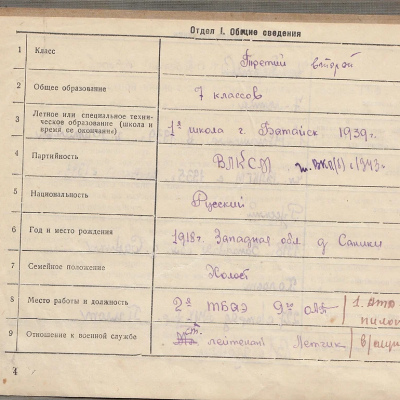 Отдел I. Общие сведения
1 Класс Третий второй
2 Общее образование 7 классов
3 Летное или специальное техни-
ческое образование (школа и
время ее окончания) 1я школа г. Батайск 1939 г.
4 Партийность ВЛКСМ чл. ВКП(б) с 1943 г.
5 Национальность Русский
6 Год и место рождения 1918 г. Западная обл. д.
7 Семейное положение Холост
8 Место работы и должность 2я ТБАЭ 9го
9 Отношение к военной службе ст. лейтенант Летчик
4